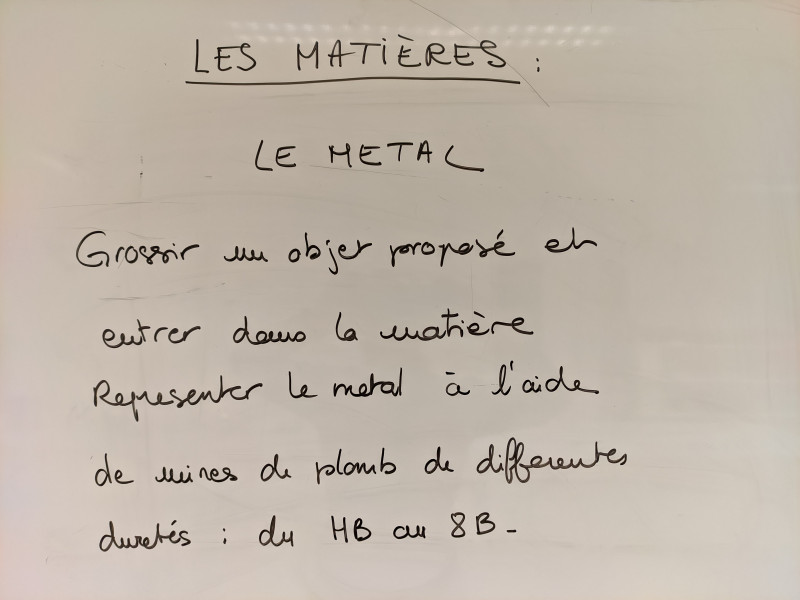 LES MATIÈRES :
LE METAL
Grossir un objet proposé et
entrer dans la matière
Representer le metal à l'aide
de mines de plomb de differentes
duretés : du HB au 8B -